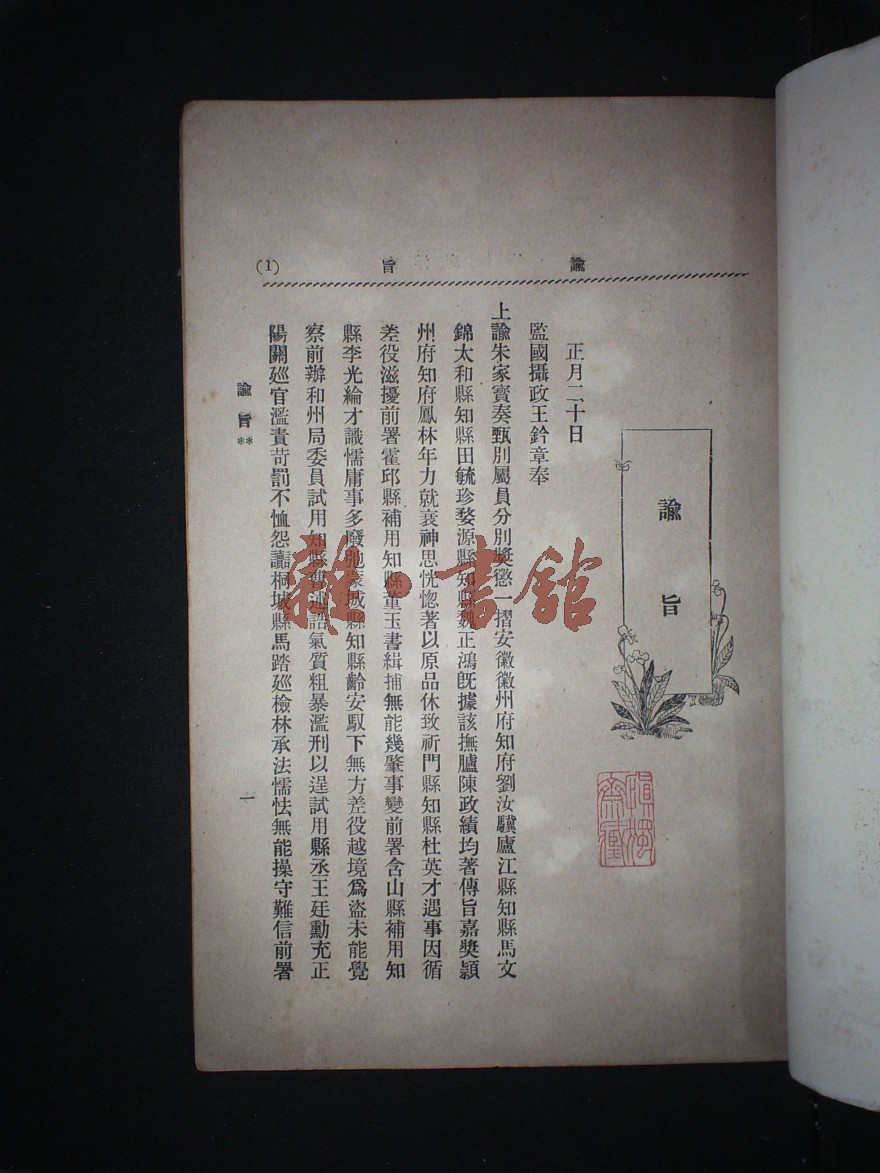 諭 旨 (1)
諭旨
正月二十日
監國攝政王鈐章奉
上諭朱家寶奏甄別屬員分別獎懲一摺安徽徽州府知府劉汝驥廬江縣知縣馬文
錦太和縣知縣田毓珍婺源縣知縣魏正鴻既據該撫臚陳政績均著傳旨嘉獎潁
州府知府鳳林年力就衰神思恍惚著以原品休致祈門縣知縣杜英才遇事因循
差役滋擾前署霍邱縣補用知縣董玉書緝捕無能幾肇事變前署含山縣補用知
縣李光綸才識懦庸事多廢弛蒙城縣知縣齡安馭下無方差役越境爲盜未能覺
察前辦和州局委員試用知縣述誥氣質粗暴濫刑以逞試用縣丞王廷勳充正
陽關廵官濫責苛罰不恤怨讟桐城縣馬踏廵檢林承法懦怯無能操守難信前署
諭旨** 一
雜·書館